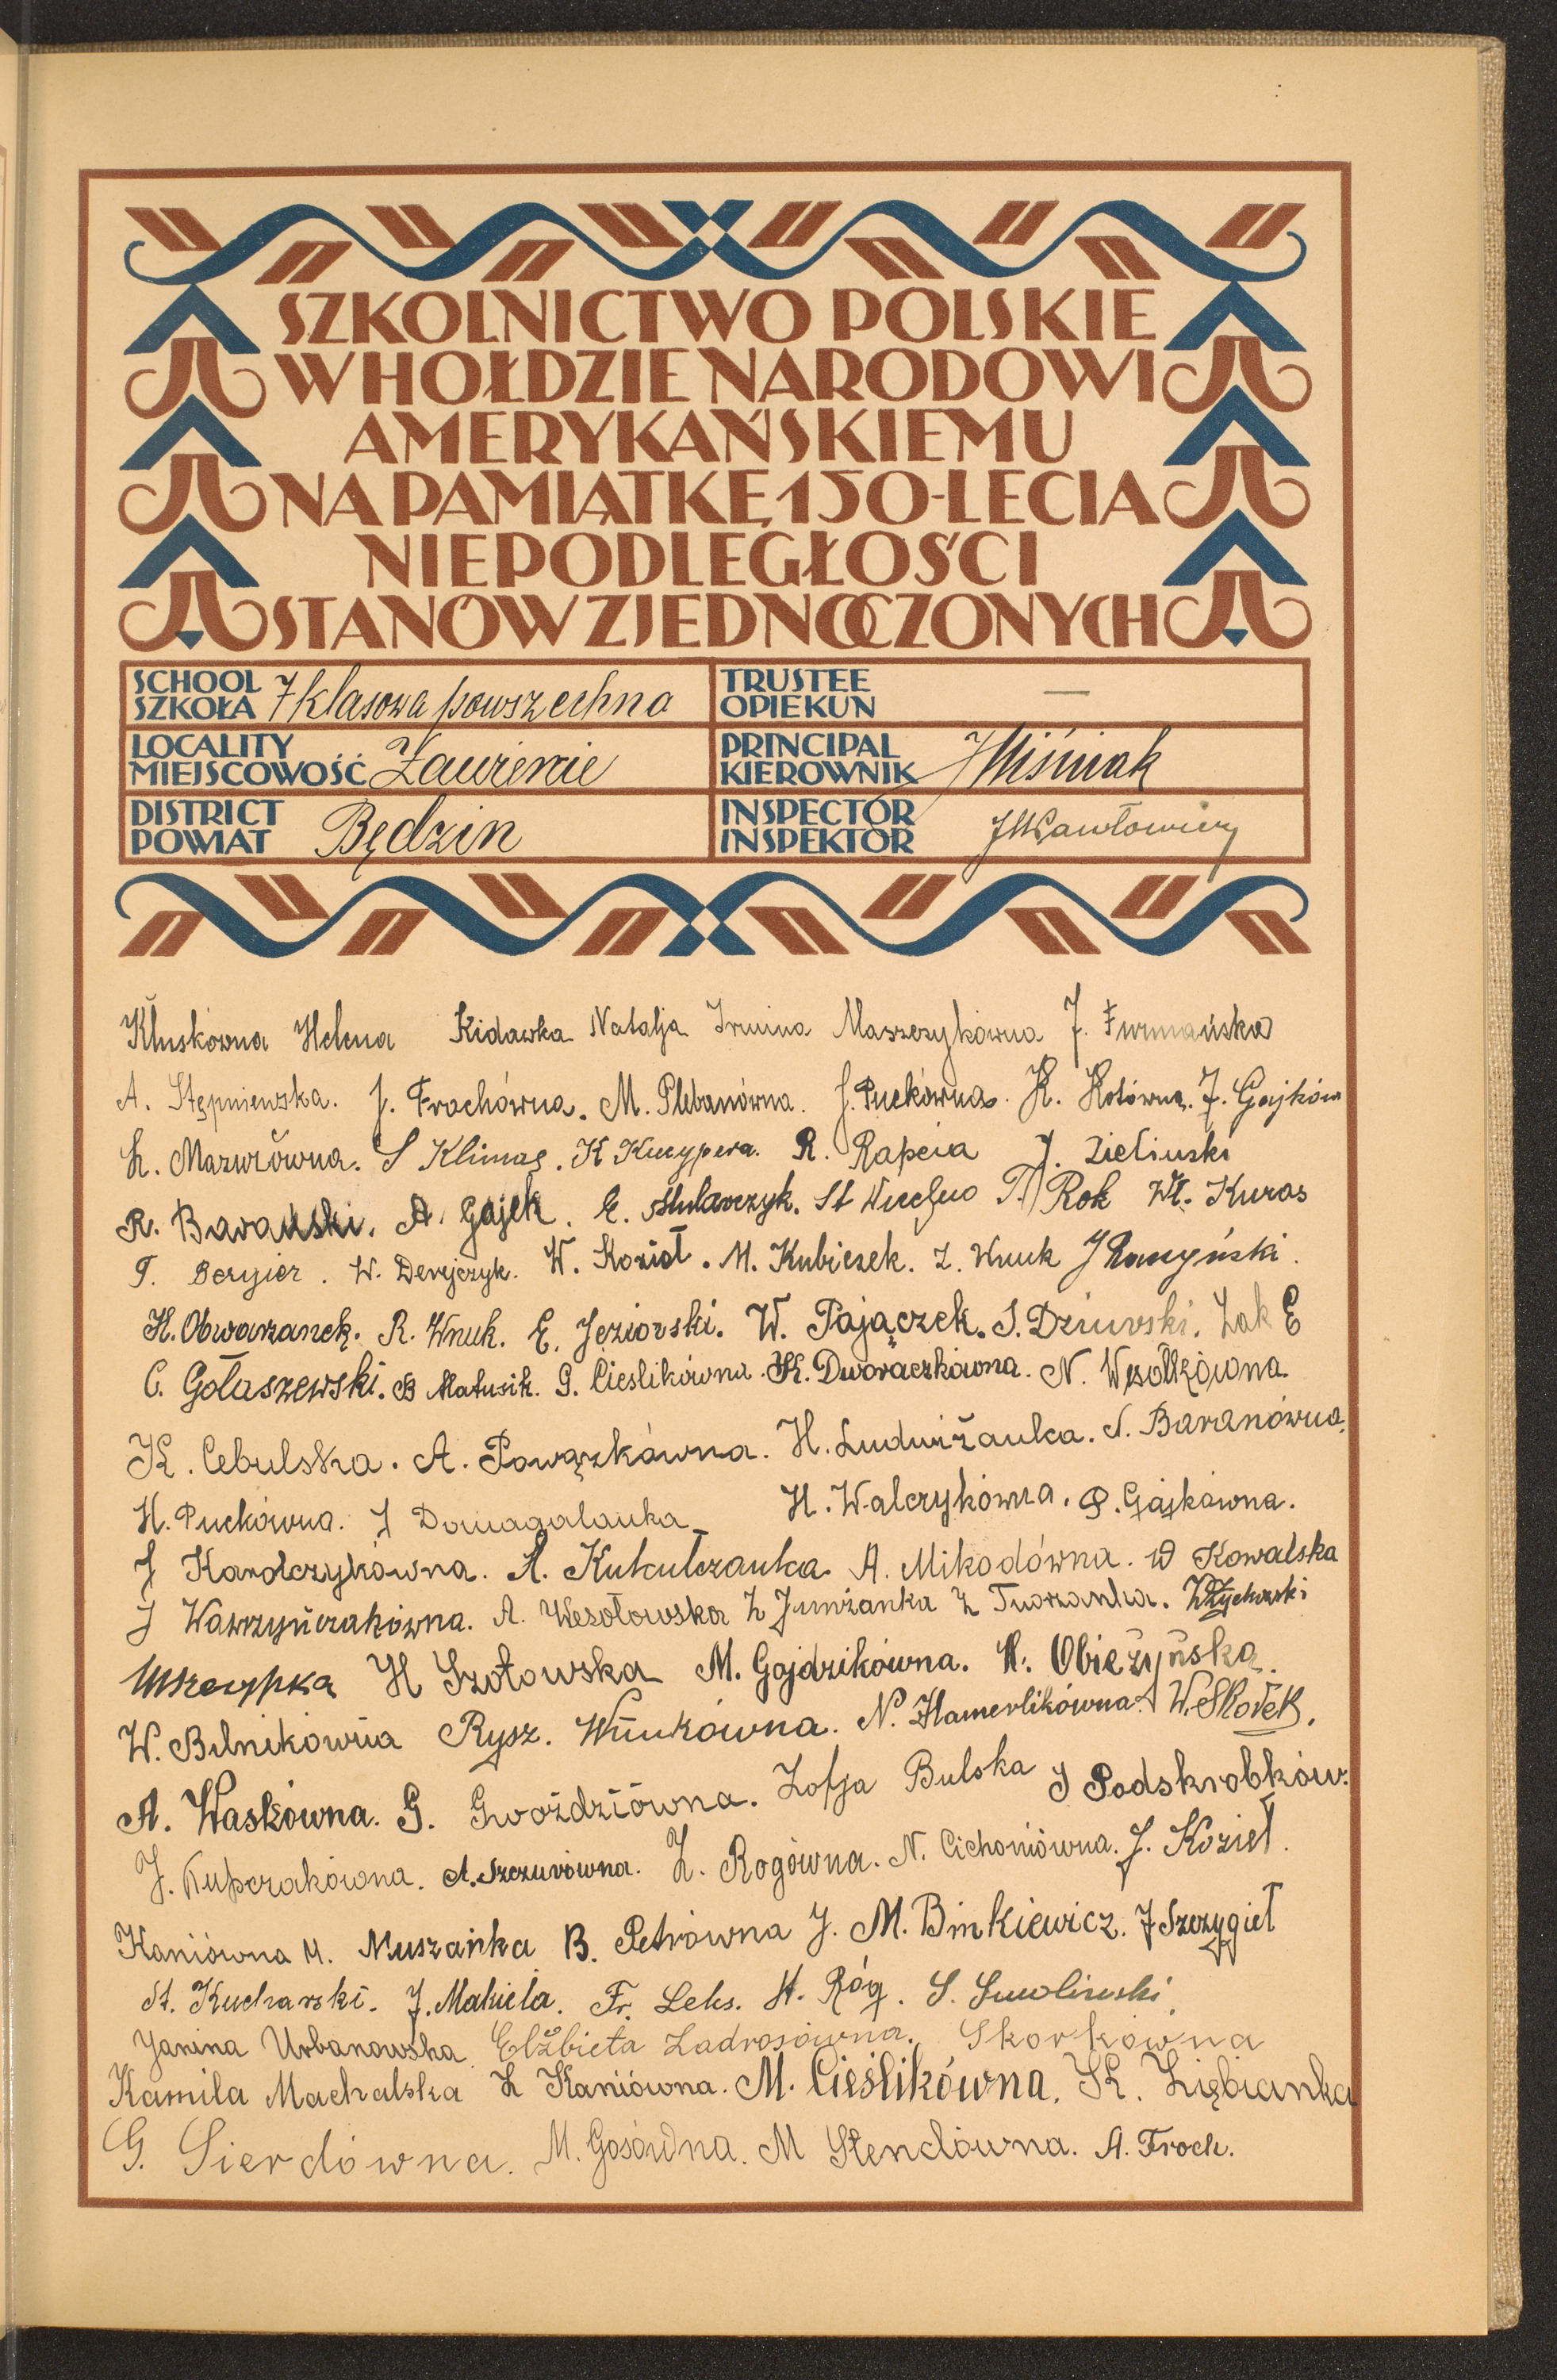 SZKOLNICTWO POLSKIE
W HOŁDZIE NARODOWI
AMERYKAŃSKIEMU
NA PAMIĄTKĘ 150-LECIA
NIEPODLEGŁOŚCI
STANÓW ZJEDNOCZONYCH
SCHOOL
SZKOŁA 7 klasowa powszechna
TRUSTEE
OPIEKUN —
LOCALITY
MIEJSCOWOŚĆ Zawiercie
PRINCIPAL
KIEROWNIK J Wiśniak
DISTRICT
POWIAT Będzin
INSPECTOR
INSPEKTOR
Kluskówna Helena Kidawka Natalja Irmina Maszczykówna J. Furmańska
A. Stępniewska. J. Frochówna. M. Plebanówna. J. Puckówna. K. Kotówna. J. Gajków
L. Mazurówna. S Klimas. K Kucypera. R. Rapcia J. Zieliński
R. Barański. A. Gajek. E. Mularczyk. St T. Rok Wł. Kuras
T. Bergier. W. Derejczyk. W. Kozioł. M. Kubiczek. Z. Wnuk
H. Obwarzanek. R. Wnuk. E. Jeziorski. W. Pajączek. S. Dziurski. Żak E
C. Gołaszewski. B Matusik. G. Cieślikówna. K. Dworaczkówna. N. Wesołkówna
K. Cebulska. A. Powązkówna. H. Ludwiżanka. N. Baranówna.
H. Puckówna. J Domagalanka H. Walczykówna. P. Gajkówna.
J Karolczykówna. A. Kukulczanka A. Mikodówna. W Kowalska
J Wawrzyńczakówna. A. Wesołowska Z Jumżanka Z Tworzanka. W Życharski
Skrzypka H Szotowska M. Gojdzikówna. H. Obieżyńska.
W. Bilnikówna Rysz. Wnukówna. N. Hamerlikówna. W. Skołek.
A. Waskówna. G. Gwoździówna. Zofja Bulska J Podskrobków.
J. Kupczakówna. A. Szczurówna. Z. Rogówna. N. Cichoniówna. J. Kozieł.
Kaniówna M. Muszanka B. Petrówna J. M. Binkiewicz. J Szczygieł
St. Kucharski. J. Makieła. Fr. Leks. H. Róg. S. Smoliński
Janina Urbanowska Elżbieta Zadrosówna. Skorkówna
Kamila Machalska Z Kaniówna. M. Cieślikówna. K. Ziębianka
G. Sierdówna. M. Gosówna. M Stendówna. A. Froch.